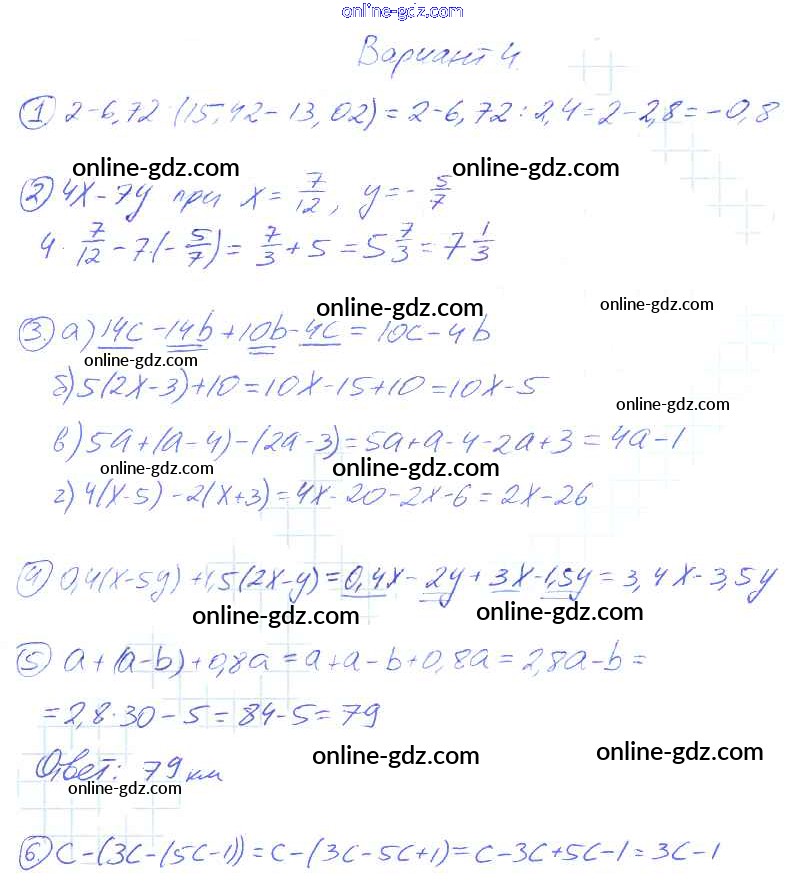 online-gdz.com
Вариант 4.
1 2-6,72:(15,42-13,02)=2-6,72:2,4=2-2,8=-0,8
online-gdz.com online-gdz.com
2) 4x-7y при x=7/12, y=-5/7
4·7/12-7·(-5/7)=7/3+5=5 7/3=7 1/3
online-gdz.com online-gdz.com
3. а) 14c-14b+10b-4c=10c-4b
online-gdz.com
б) 5(2x-3)+10=10x-15+10=10x-5
online-gdz.com
в) 5a+(a-4)-(2a-3)=5a+a-4-2a+3=4a-1
online-gdz.com online-gdz.com
г) 4(x-5)-2(x+3)=4x-20-2x-6=2x-26
4) 0,4(x-5y)+1,5(2x-y)=0,4x-2y+3x-1,5y=3,4x-3,5y
online-gdz.com online-gdz.com
5 a+(a-b)+0,8a=a+a-b+0,8a=2,8a-b=
=2,8·30-5=84-5=79
online-gdz.com online-gdz.com
Ответ: 79 км
online-gdz.com
6. c-(3c-(5c-1))=c-(3c-5c+1)=c-3c+5c-1=3c-1